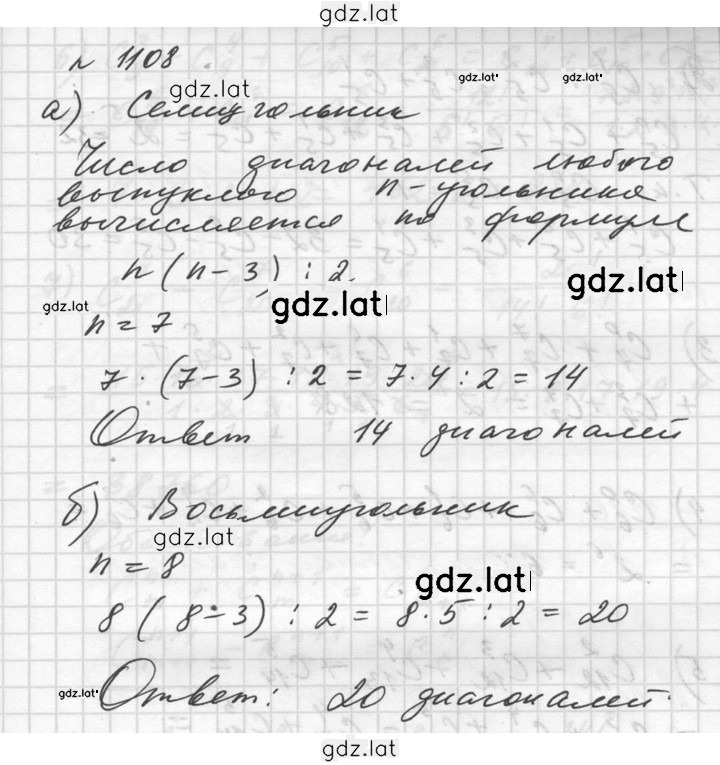 gdz.lat
№ 1108
gdz.lat
gdz.lat
gdz.lat
а) Семиугольник
Число диагоналей любого
выпуклого n-угольника
вычисляется по формуле
n(n-3) : 2
gdz.lat
gdz.lat
gdz.lat
n = 7
7 · (7-3) : 2 = 7·4 : 2 = 14
Ответ 14 диагоналей
б) Восьмиугольник
gdz.lat
n = 8
gdz.lat
8 (8-3) : 2 = 8·5 : 2 = 20
gdz.lat
Ответ: 20 диагоналей
gdz.lat